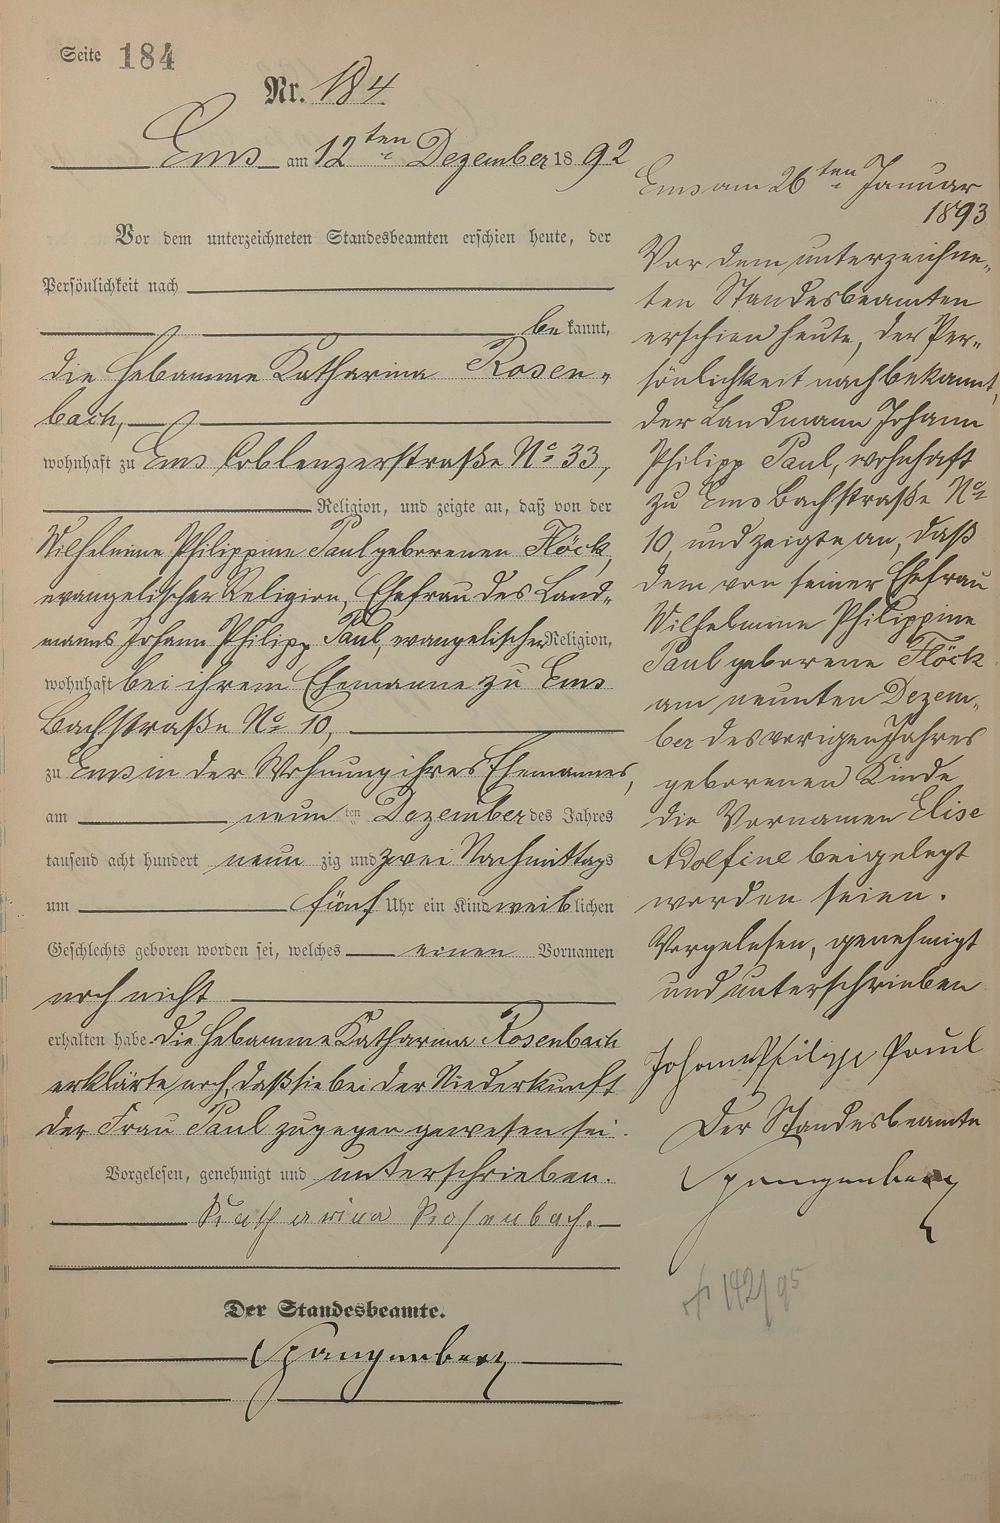 Seite 184
Nr. 184
Ems am 12ten Dezember 1892
Vor dem unterzeichneten Standesbeamten erschien heute, der
Persönlichkeit nach
bekannt,
die Hebamme Katharina Rosen-
bach,
wohnhaft zu Ems Coblenzerstraße No 33,
Religion, und zeigte an, daß von der
Wilhelmine Philippine Paul geborenen Flöck,
evangelischer Religion, Ehefrau des Land-
manns Johann Philipp Paul, evangelischer Religion,
wohnhaft bei ihrem Ehemanne zu Ems
Bachstraße No 10,
zu Ems in der Wohnung ihres Ehemannes,
am neunten Dezember des Jahres
tausend acht hundert neunzig und zwei Nachmittags
um fünf Uhr ein Kind weiblichen
Geschlechts geboren worden sei, welches einen Vornamen
noch nicht
erhalten habe. Die Hebamme Katharina Rosenbach
erklärte noch, daß sie bei der Niederkunft
der Frau Paul zugegen gewesen sei.
Vorgelesen, genehmigt und unterschrieben.
Katharina Rosenbach.
Der Standesbeamte.
Spangenberg
Ems am 26ten Januar
1893
Vor dem unterzeichne-
ten Standesbeamten
erschien heute, der Per-
sönlichkeit nach bekannt,
der Landmann Johann
Philipp Paul, wohnhaft
zu Ems Bachstraße No
10, und zeigte an, daß
dem von seiner Ehefrau
Wilhelmine Philippine
Paul geborene Flöck
am neunten Dezem-
ber des vorigen Jahres
geborenen Kinde
die Vornamen Elise
Adolfine beigelegt
worden seien.
Vorgelesen, genehmigt
und unterschrieben
Johann Philipp Paul
Der Standesbeamte
Spangenberg
142/95